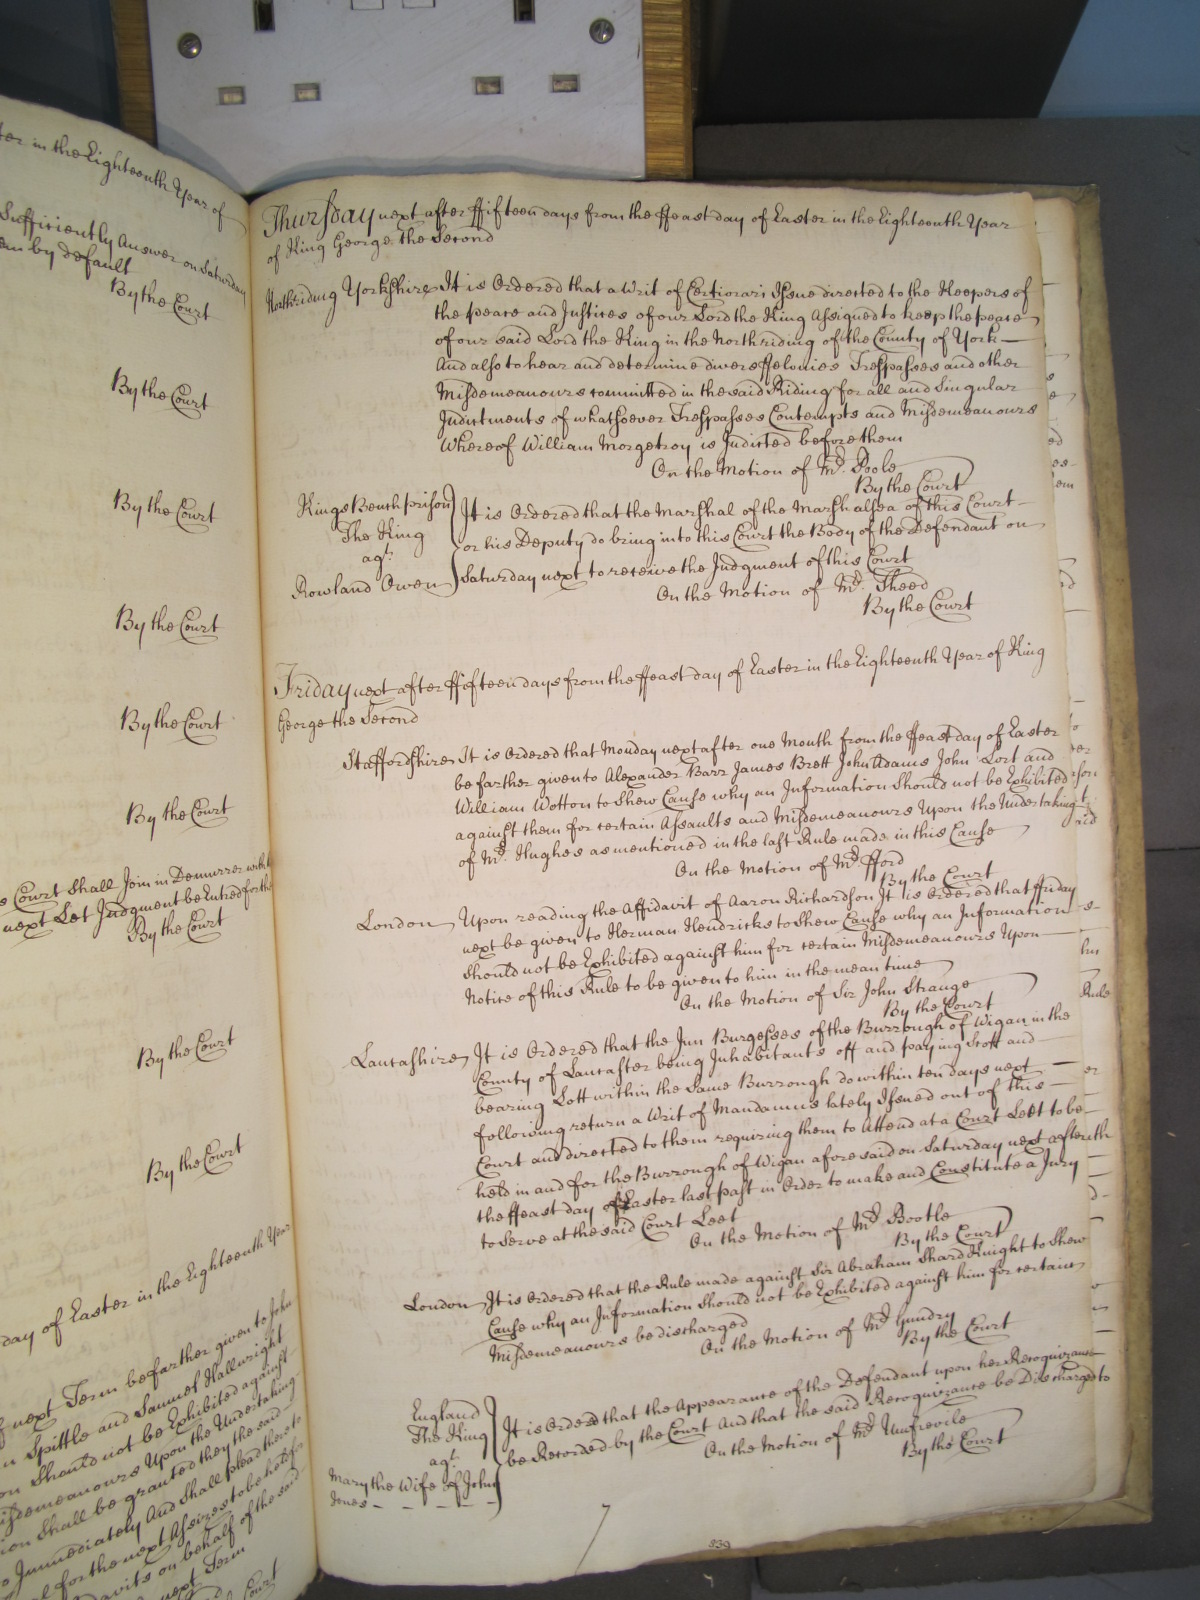 ter in the Eighteenth Year of
Sufficiently Answer on Saturday
by default
By the Court
By the Court
By the Court
By the Court
By the Court
By the Court
Court Shall Join in Demurrer with
next Let Judgment be Entred for the
By the Court
By the Court
By the Court
day of Easter in the Eighteenth Year
next Term be farther given to John
Spittle and Samuel Hallwright
on Should not be Exhibited against
isdemeanours Upon the Undertaking
ion Shall be granted they the said
Immediately And Shall plead thereto
for the next Assizes to be held for
davits on behalf of the said
next Term
Court
Thursday next after ffifteen days from the ffeast day of Easter in the Eighteenth Year
of King George the Second
Northriding Yorkshire It is Ordered that a Writ of Certiorari Issue directed to the Keepers of
the peace and Justices of our Lord the King Assigned to keep the peace
of our said Lord the King in the Northriding of the County of York
And also to hear and determine divers ffelonies Trespasses and other
Misdemeanours committed in the said Riding for all and Singular
Indictments of whatsoever Trespasses Contempts and Misdemeanours
Whereof William Morgetroy is Indicted before them
On the Motion of Mr. Poole
By the Court
Kings Bench prison
The King
agt.
Rowland Owen
It is Ordered that the Marshal of the Marshalsea of this Court
or his Deputy do bring into this Court the Body of the Defendant on
Saturday next to receive the Judgment of this Court
On the Motion of Mr. Theed
By the Court
Friday next after ffifteen days from the ffeast day of Easter in the Eighteenth Year of King
George the Second
Staffordshire It is Ordered that Monday next after one Month from the ffeast day of Easter
be farther given to Alexander Barr James Brett John Adams John Lort and
William Wotton to Shew Cause why an Information Should not be Exhibited
against them for certain Assaults and Misdemeanours Upon the Undertaking
of Mr. Hughes as mentioned in the last Rule made in this Cause
On the Motion of Mr. fford
By the Court
London Upon reading the Affidavit of Aaron Richardson It is Ordered that ffriday
next be given to Herman Hendricks to Shew Cause why an Information
Should not be Exhibited against him for certain Misdemeanours Upon
Notice of this Rule to be given to him in the mean time
On the Motion of Sir John Strange
By the Court
Lancashire It is Ordered that the Inn Burgesses of the Burrough of Wigan in the
County of Lancaster being Inhabitants off and paying Scott and
bearing Lott within the Same Burrough do within ten days next
following return a Writ of Mandamus lately Issued out of this
Court and directed to them requiring them to Attend at a Court Leet to be
held in and for the Burrough of Wigan aforesaid on Saturday next after
the ffeast day of Easter last past in Order to make and Constitute a Jury
to Serve at the said Court Leet
On the Motion of Mr. Bootle
By the Court
London It is Ordered that the Rule made against Sir Abraham Shard Knight to Shew
Cause why an Information Should not be Exhibited against him for certain
Misdemeanours be discharged
On the Motion of Mr. Gundry
By the Court
England
The King
agt.
Mary the Wife of John
Jones
It is Ordered that the Appearance of the Defendant upon her Recognizance
be Recorded by the Court And that the said Recognizance be Discharged
On the Motion of Mr. Umfrevile
By the Court
239
Rule